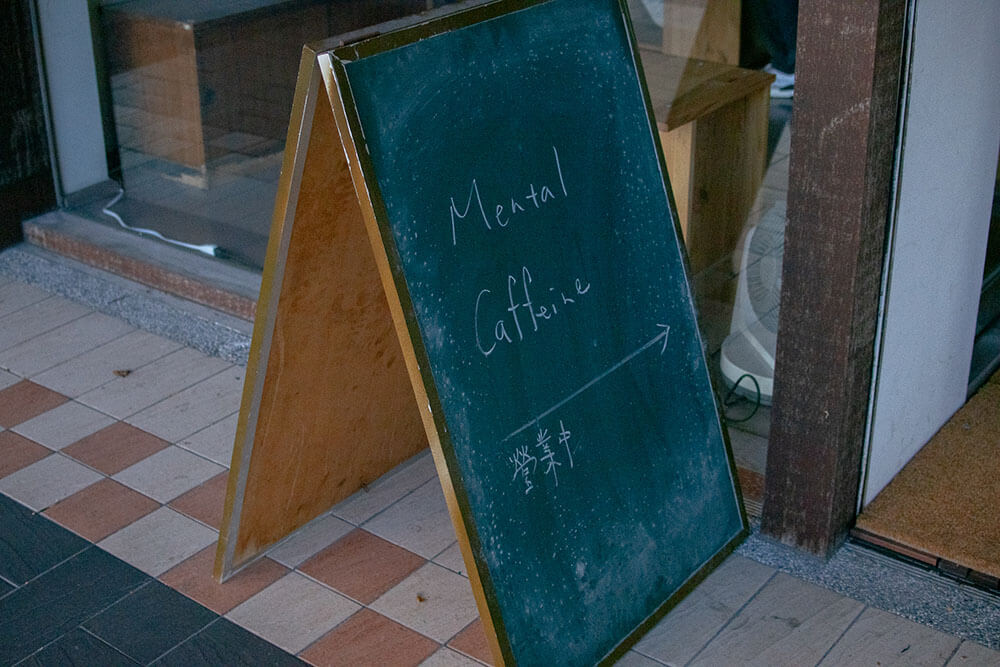 Mental
Caffeine
營業中